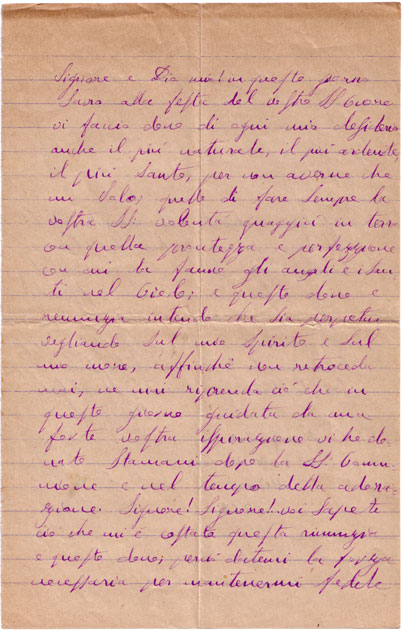 Signore e Dio mio! in questo giorno
Sacro alla festa del vostro SS Cuore
vi faccio dono di ogni mio desiderio
anche il più naturale, il più ardente,
il più Santo, per non averne che
un Solo; quello di fare Sempre la
vostra SS. volontà quaggiù in terra
con quella prontezza e perfezione
con cui la fanno gli angeli e i San
ti nel Cielo; e questo dono e
rinunzia intendo che sia perpetua
sul mio Spirito e sul
mio cuore, affinchè non retroceda
mai, ne mi riprenda ciò che in
questo giorno guidata da una
forte vostra ispirazione vi ho do
nato Stamani dopo la SS. Comu
nione e nel tempo della adora
zione. Signore! Signore! voi Sapete
ciò che mi è costata questa rinunzia
e questo dono; perciò datemi la forza
necessaria per mantenermi fedele